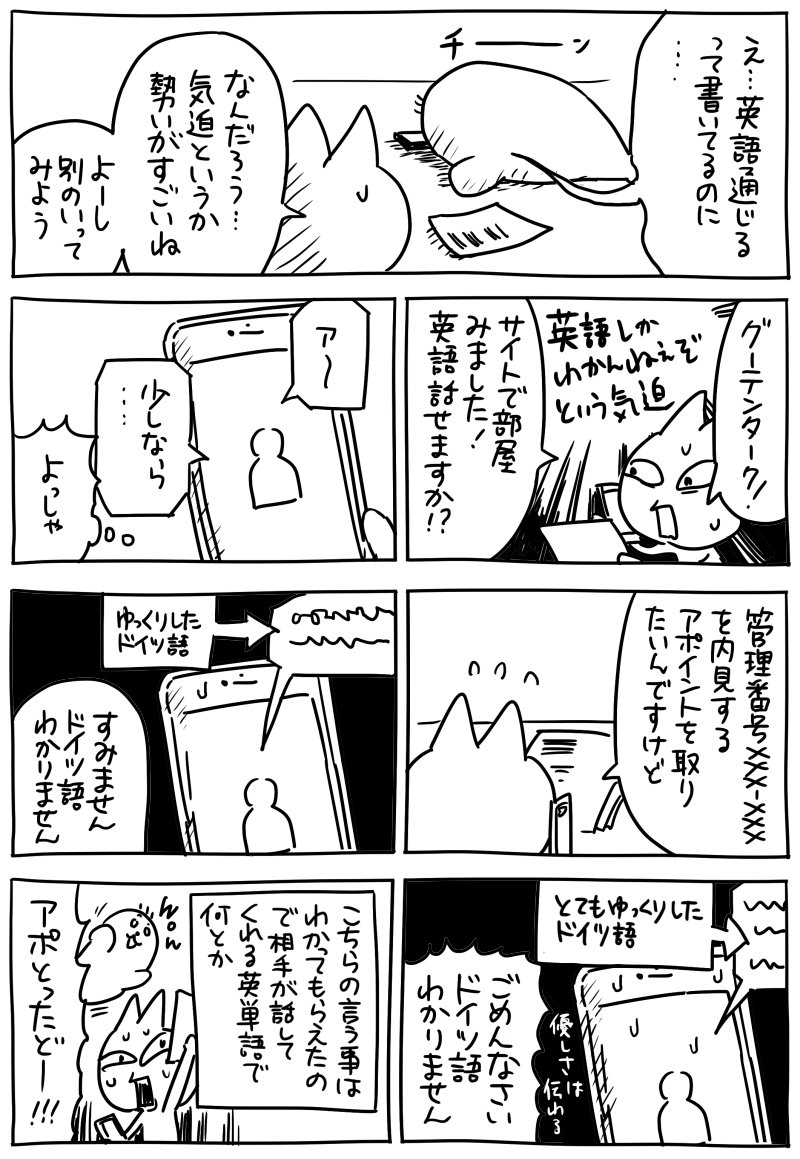 え…英語通じる
って書いてるのに
……
チーーン
なんだろう…
気迫というか
勢いがすごいね
よーし
別のいって
みよう
グーテンターク!
英語しか
わかんねぇぞ
という気迫
サイトで部屋
みました!
英語話せますか!?
ア〜
少しなら
……
よっしゃ
管理番号×××-×××
を内見する
アポイントを取り
たいんですけど
ゆっくりした
ドイツ語
すみません
ドイツ語
わかりません
とてもゆっくりした
ドイツ語
優しさは
伝わる
ごめんなさい
ドイツ語
わかりません
こちらの言う事は
わかってもらえたの
で相手が話して
くれる英単語で
何とか
アポとったどー!!!